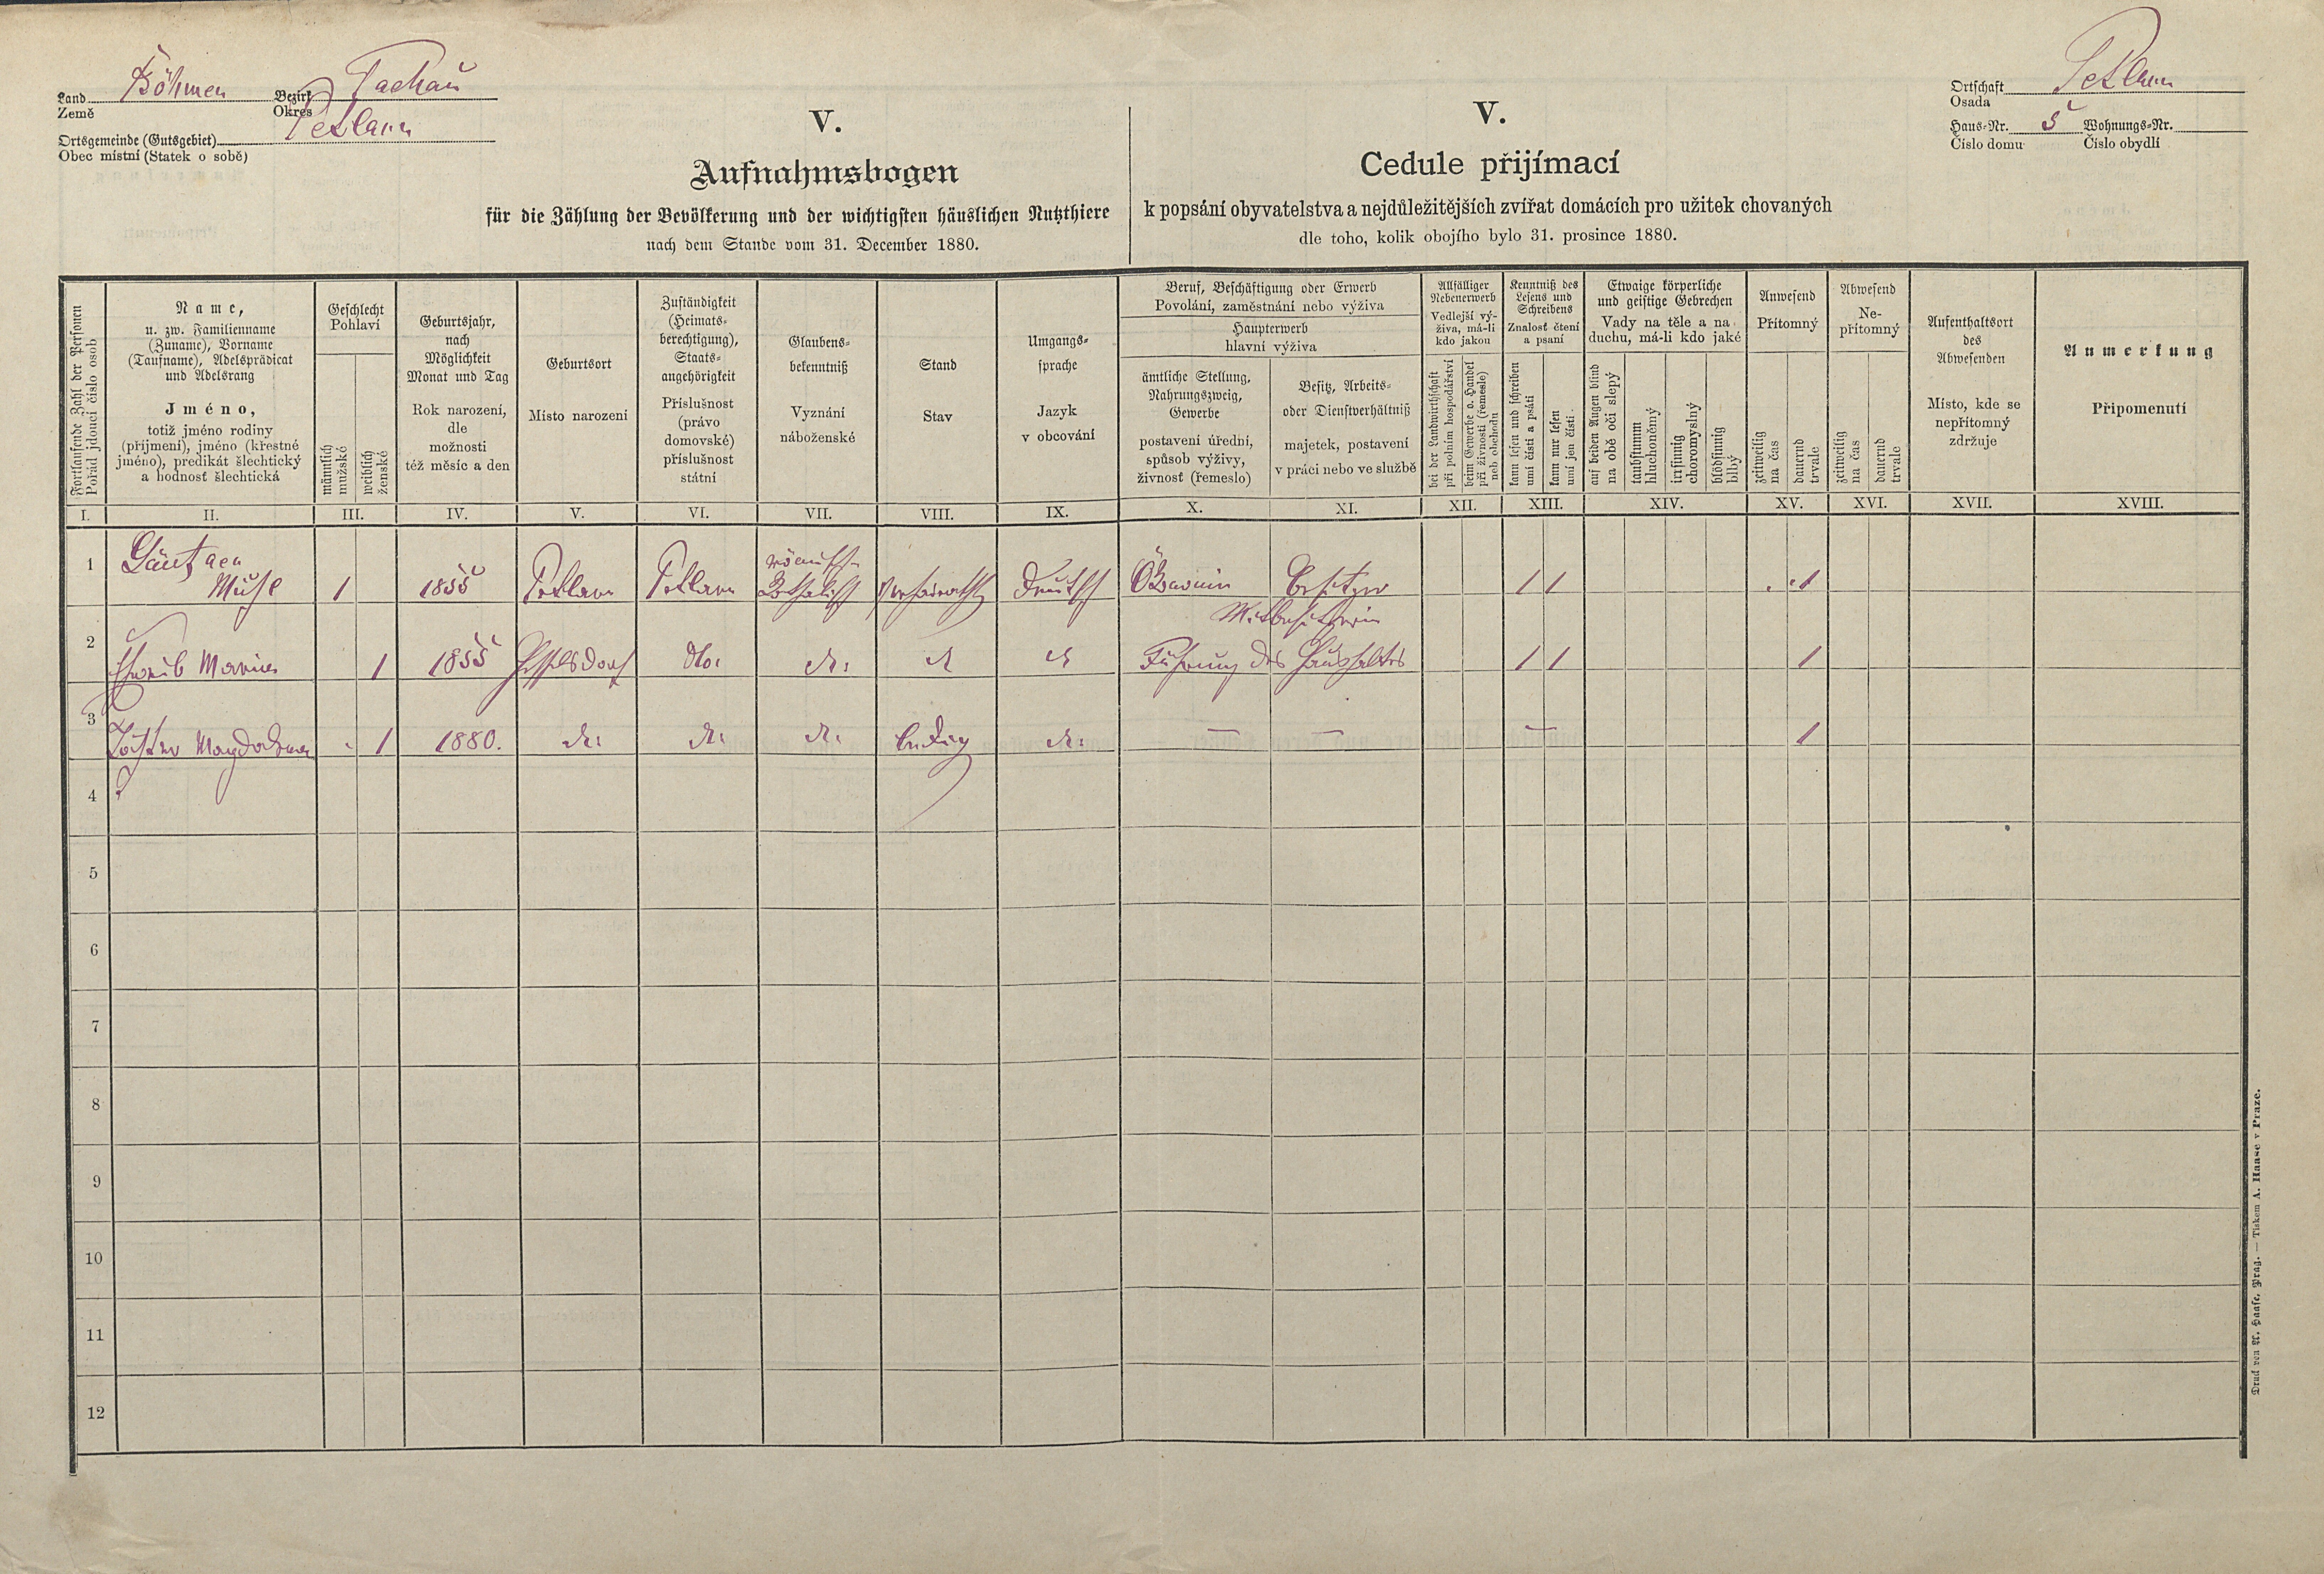 Land Böhmen Bezirk Tachau
Země Okres
Ortsgemeinde (Gutsgebiet) Petlarn
Obec místní (Statek o sobě)
Ortschaft Petlarn
Osada
Haus-Nr. 5 Wohnungs-Nr.
Číslo domu Číslo obydlí
V.
Aufnahmsbogen
für die Zählung der Bevölkerung und der wichtigsten häuslichen Nutzthiere
nach dem Stande vom 31. December 1880.
V.
Cedule přijímací
k popsání obyvatelstva a nejdůležitějších zvířat domácích pro užitek chovaných
dle toho, kolik obojího bylo 31. prosince 1880.
Fortlaufende Zahl der Personen
Pořád jdoucí číslo osob
Name,
u. zw. Familienname
(Zuname), Vorname
(Taufname), Adelsprädicat
und Adelsrang
Jméno,
totiž jméno rodiny
(příjmení), jméno (křestné
jméno), predikát šlechtický
a hodnosť šlechtická
Geschlecht
Pohlaví
männlich
mužské
weiblich
ženské
Geburtsjahr,
nach
Möglichkeit
Monat und Tag
Rok narození,
dle
možnosti
též měsíc a den
Geburtsort
Místo narození
Zuständigkeit
(Heimats-
berechtigung),
Staats-
angehörigkeit
Příslušnost
(právo
domovské)
příslušnost
státní
Glaubens-
bekenntniß
Vyznání
náboženské
Stand
Stav
Umgangs-
sprache
Jazyk
v obcování
Beruf, Beschäftigung oder Erwerb
Povolání, zaměstnání nebo výživa
Haupterwerb
hlavní výživa
ämtliche Stellung,
Nahrungszweig,
Gewerbe
postavení úřední,
spůsob výživy,
živnosť (řemeslo)
Besitz, Arbeits-
oder Dienstverhältniß
majetek, postavení
v práci nebo ve službě
Allfälliger
Nebenerwerb
Vedlejší vý-
živa, má-li
kdo jakou
bei der Landwirthschaft
při polním hospodářství
beim Gewerbe o. Handel
při živnosti (řemesle)
neb obchodu
Kenntniß des
Lesens und
Schreibens
Znalosť čtení
a psaní
kann lesen und schreiben
umí čísti a psáti
kann nur lesen
umí jen čísti
Etwaige körperliche
und geistige Gebrechen
Vady na těle a na
duchu, má-li kdo jaké
auf beiden Augen blind
na obě oči slepý
taubstumm
hluchoněmý
irrsinnig
choromyslný
blödsinnig
blbý
Anwesend
Přítomný
zeitweilig
na čas
dauernd
trvale
Abwesend
Ne-
přítomný
zeitweilig
na čas
dauernd
trvale
Aufenthaltsort
des
Abwesenden
Místo, kde se
nepřítomný
zdržuje
Anmerkung
Připomenutí
I. II. III. IV. V. VI. VII. VIII. IX. X. XI. XII. XIII. XIV. XV. XVI. XVII. XVIII.
römisch-
1 1 1855 Petlarn Petlarn katholisch verheirathet Deutsch Ökonomie Besitzer 1 1 1
Mitbesitzerin
2 Weib Maria 1 1855 dto. dt. dt. dt. Führung des Haushaltes 1 1 1
3 Tochter Magdalena 1 1880. dt. dt. dt. ledig dt. — — — 1
4
5
6
7
8
9
10
11
12
Druck von A. Haase, Prag. — Tiskem A. Haase v Praze.